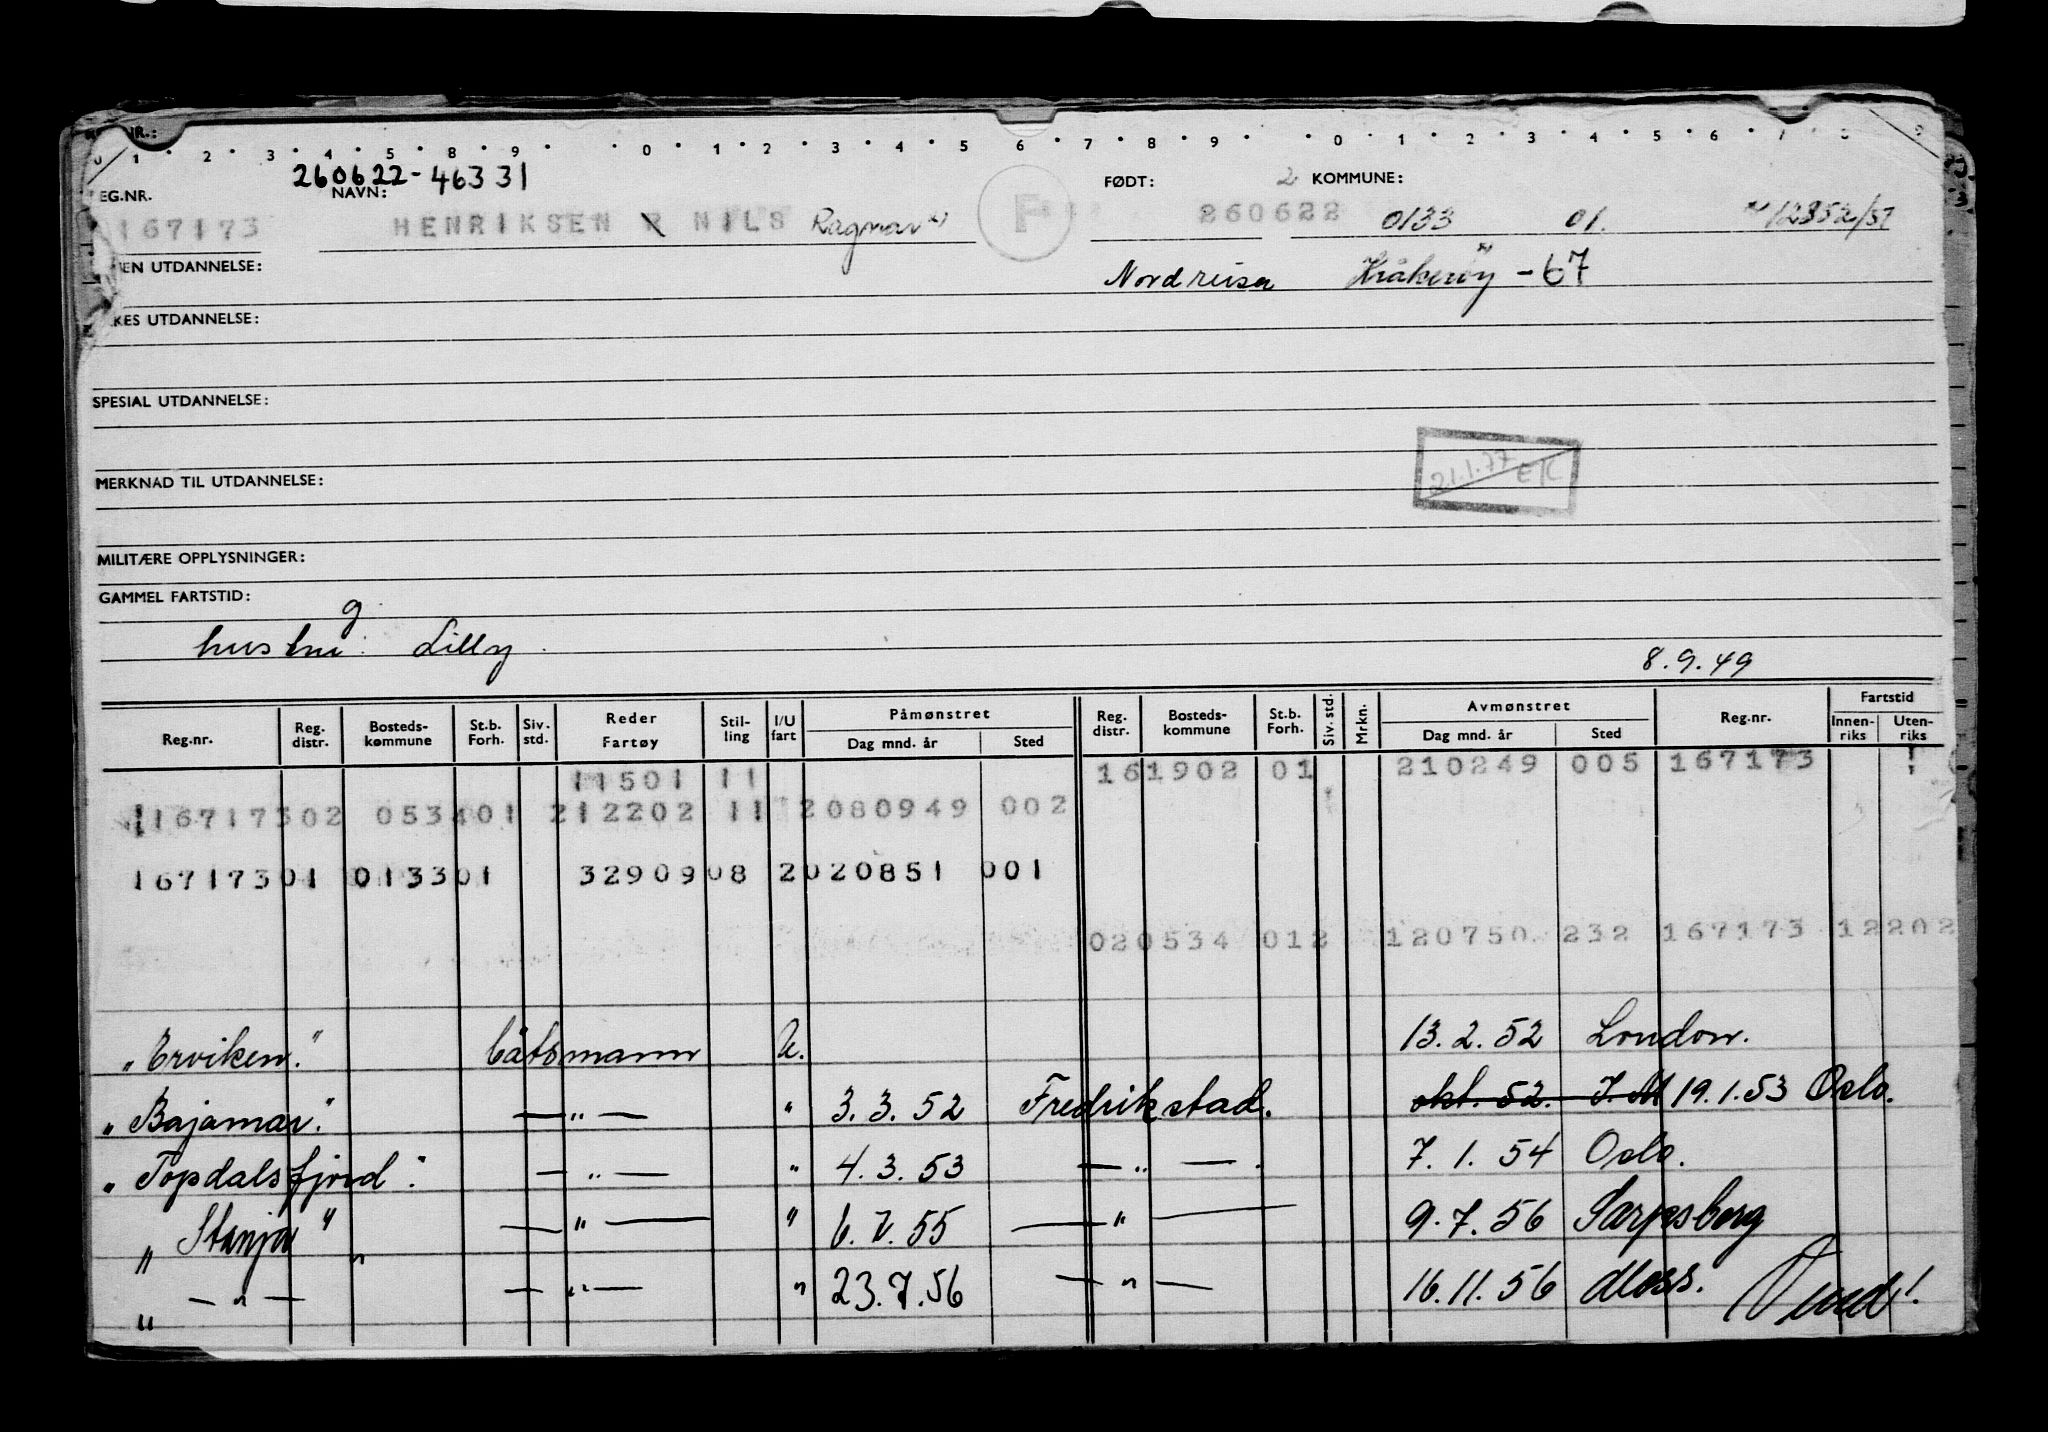 NR.:
0 1 2 3 4 5 8 9 0 1 2 3 4 5 6 7 8 9 0 1 2 3 4 5 6 7 8 9
260622-46331
EG.NR. NAVN: FØDT: 2 KOMMUNE:
167173 HENRIKSEN R NILS Ragnar x) F 260622 0133 01. 12852/57
EN UTDANNELSE: Nordreisa Kråkerøy -67
KES UTDANNELSE:
SPESIAL UTDANNELSE:
MERKNAD TIL UTDANNELSE: 21.1.77 E/C
MILITÆRE OPPLYSNINGER:
GAMMEL FARTSTID:
g
hustru: Lilly.
8.9.49
Reg.nr. Reg. distr. Bosteds-kommune St.b. Forh. Siv. std. Reder Fartøy Stil-ling I/U fart Påmønstret Dag mnd. år Sted Reg. distr. Bosteds-kommune St.b. Forh. Siv. std. Mrkn. Avmønstret Dag mnd. år Sted Reg.nr. Fartstid Innen-riks Uten-riks
11501 11 161902 01 210249 005 167173
16717302 053401 212202 11 2080949 002
16717301 013301 3290908 2020851 001
020534 012 120750 232 167173 12202
"Erviken." båtsmann U. 13.2.52 London.
"Bajamar." — " — " 3.3.52 Fredrikstad. okt. 52. I.M 19.1.53 Oslo.
"Topdalsfjord". — " — " 4.3.53 — " — . 7.1.54 Oslo.
"Stanja" — " — " 6.7.55 — " — 9.7.56 Sarpsborg
" — " — " — " — " 23.7.56 — " — 16.11.56 Moss. Vend!